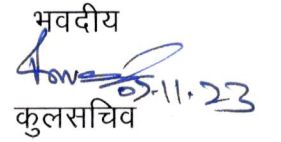 भवदीय
05.11.23
कुलसचिव